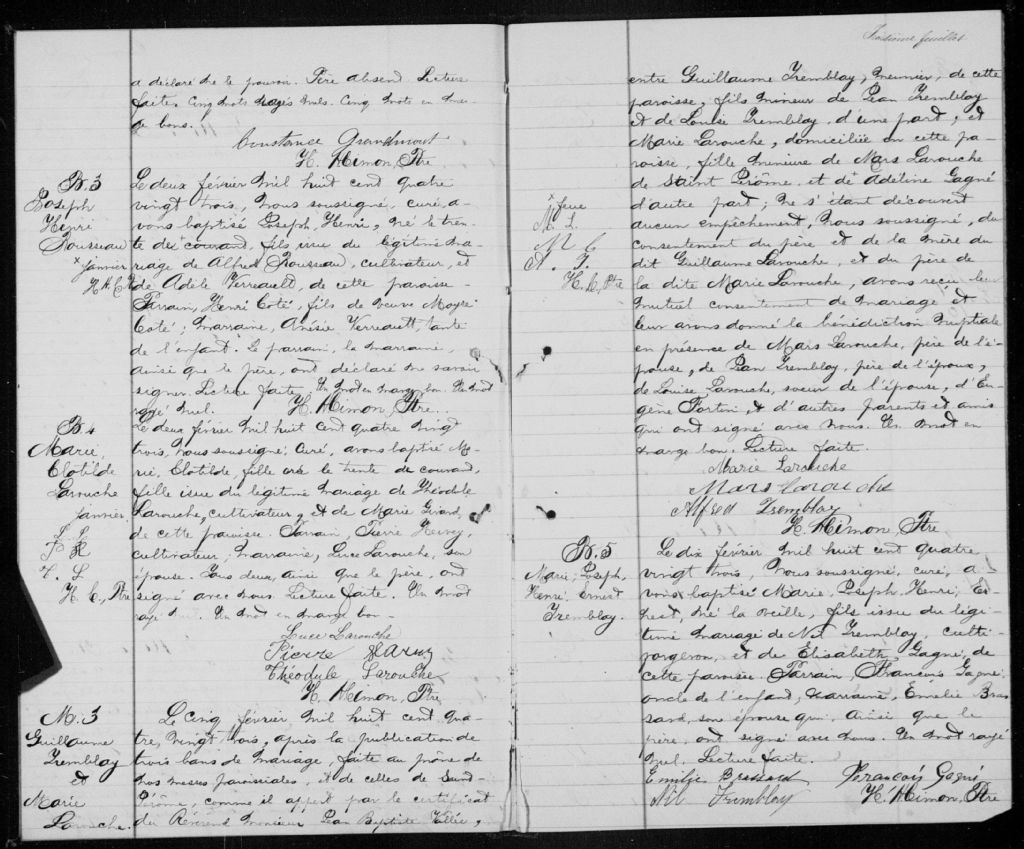 a déclaré ne le pouvoir. Père absent. Lecture
faite. Cinq mots rayés nuls. Cinq mots en mar-
ge bons.
Constance Grandmont
H. Cimon, Ptre
B. 3
Joseph
Henri
Rousseau
x janvier
H. C. Ptre
Le deux février mil huit cent quatre
vingt trois, nous soussigné, curé, a-
vons baptisé Joseph, Henri, né le tren-
te de courant, fils issu du légitime ma-
riage de Alfred Rousseau, cultivateur, et
de Adèle Verreault, de cette paroisse.
Parrain, Henri Coté, fils de veuve Moyse
Coté; marraine, Anésie Verreault, tante
de l'enfant. Le parrain, la marraine,
ainsi que le père, ont déclaré ne savoir
signer. Lecture faite. Un mot en marge bon. Un mot
rayé nul. H. Cimon, Ptre.
B. 4
Marie,
Clotilde
Larouche
janvier
L. L.
P. H
T. L
H. C., Ptre
Le deux février mil huit cent quatre vingt
trois, nous soussigné, curé, avons baptisé Ma-
rie, Clotilde, fille née le trente de courant,
fille issue du légitime mariage de Théodule
Larouche, cultivateur, et de Marie Girard,
de cette paroisse. Parrain, Pierre Harvey,
cultivateur; marraine, Luce Larouche, son
épouse. Tous deux, ainsi que le père, ont
signé avec nous. Lecture faite. Un mot
rayé nul. Un mot en marge bon.
Luce Larouche
Pierre Harvey
Théodule Larouche
H. Cimon, Ptre
M. 3
Guillaume
Tremblay
et
Marie
Larouche.
Le cinq février, mil huit cent qua-
tre, vingt trois, après la publication de
trois bans de mariage, faite au prône de
nos messes paroissiales, et de celles de Saint
Jérôme, comme il appert par le certificat
du Révérend Monsieur Jean Baptiste Vallée,
Troisième feuillet
entre Guillaume Tremblay, meunier, de cette
paroisse, fils mineur de Jean Tremblay
et de Louise Tremblay, d'une part, et
Marie Larouche, domiciliée en cette pa-
roisse, fille mineure de Mars Larouche
de Saint Jérôme et de x Adéline Gagné
d'autre part; ne s'étant découvert
aucun empêchement, nous soussigné, du
consentement du père et de la mère du
dit Guillaume Larouche, et du père de
la dite Marie Larouche, avons reçu leur
mutuel consentement de mariage et
leur avons donné la bénédiction nuptiale
en présence de Mars Larouche, père de l'é-
pouse, de Jean Tremblay, père de l'époux,
de Louise Larouche, soeur de l'épouse, d'Eu-
gène Fortin, et d'autres parents et amis
qui ont signé avec nous. Un mot en
marge bon. Lecture faite.
x feue
M. L.
M L
A. T.
H. C., Ptre
Marie Larouche
Mars Larouche
Alfred Tremblay
H. Cimon, Ptre
B. 5
Marie, Joseph,
Henri, Ernest
Tremblay.
Le dix février mil huit cent quatre
vingt trois, nous soussigné, curé, a-
vons baptisé Marie, Joseph, Henri, Er-
nest, né la veille, fils issu du légi-
time mariage de Nil Tremblay,
forgeron, et de Elisabeth Gagné, de
cette paroisse. Parrain, François Gagné,
oncle de l'enfant, marraine, Emelie Bras
sard, son épouse qui, ainsi que le
père, ont signé avec nous. Un mot rayé
nul. Lecture faite.
Emilie Brassard François Gagné
Nil Tremblay H. Cimon, Ptre